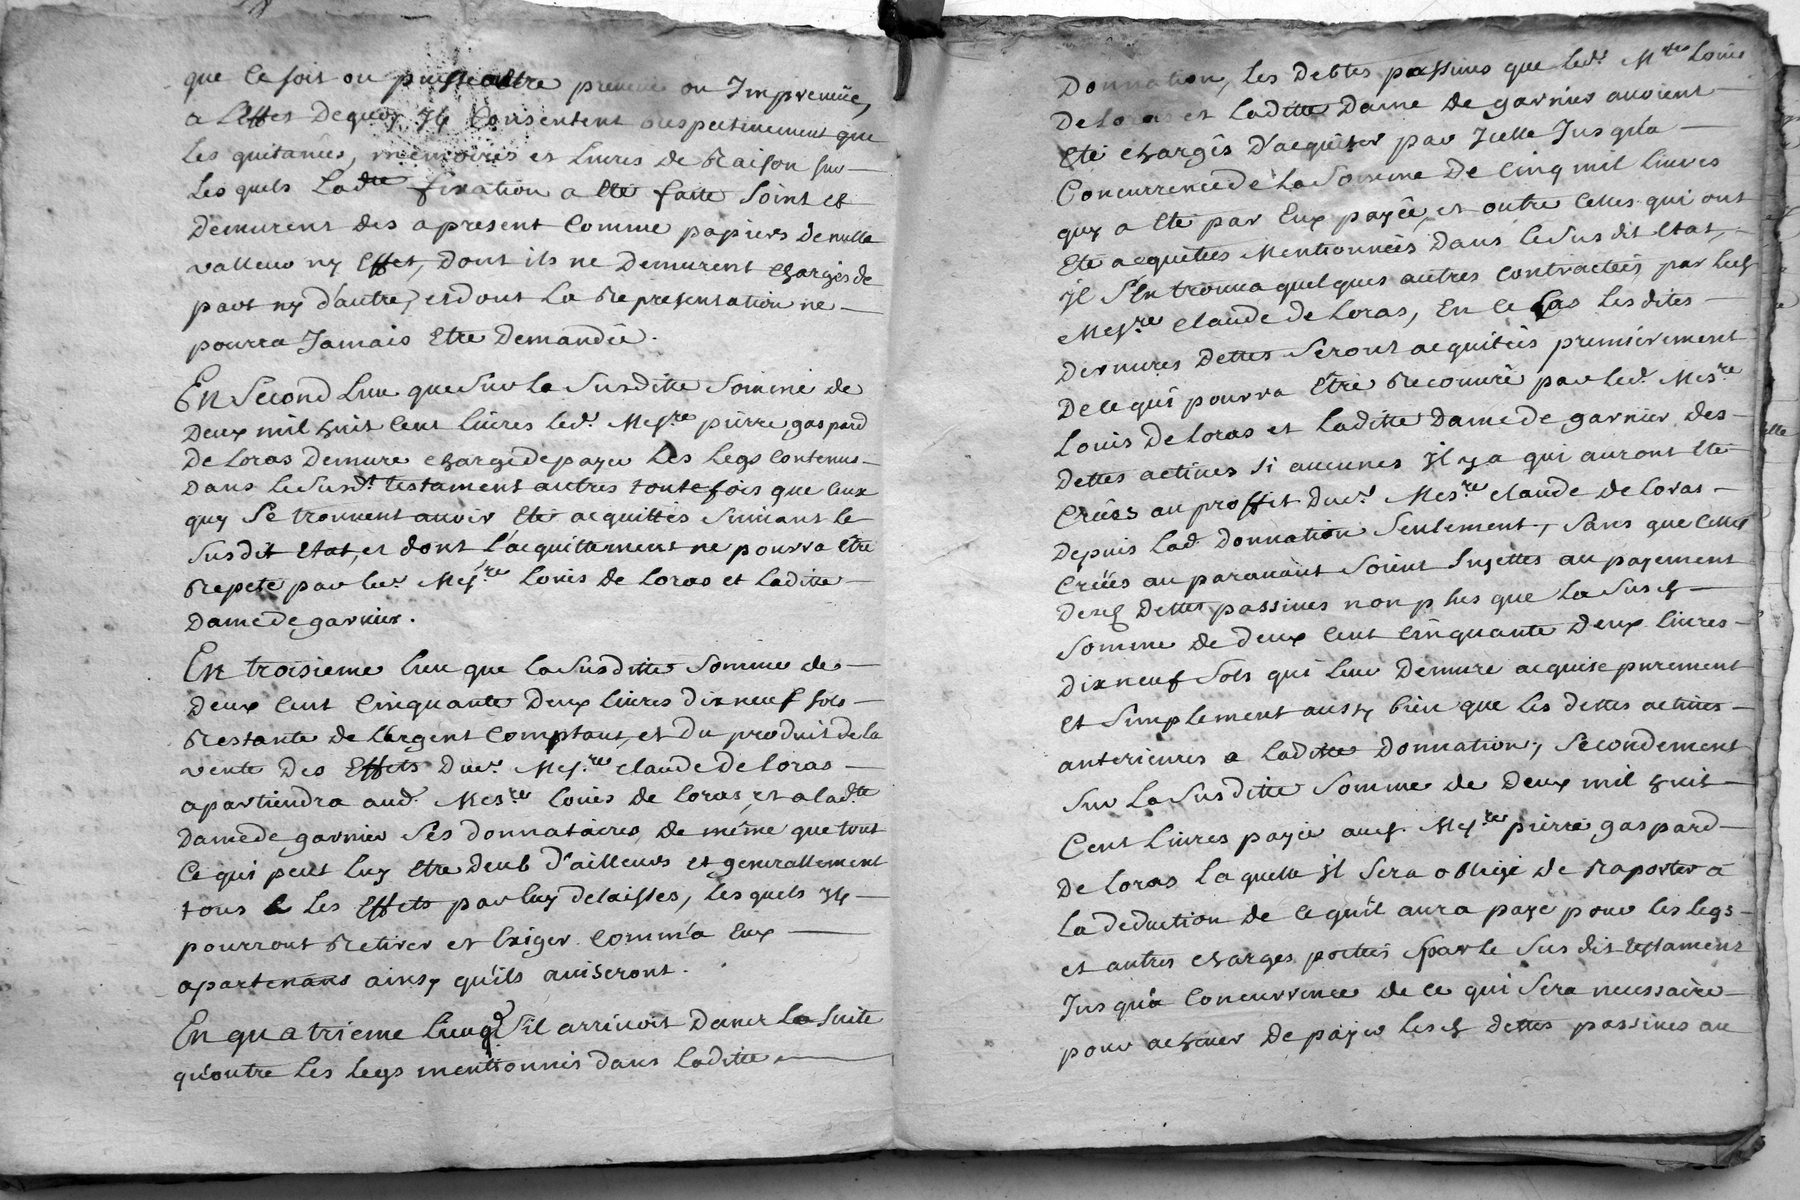 que ce soit ou puisse être preveüe ou Impreveüe,
a l'effet De quoy Ils Consentent respectivement que
les quitances, mémoires et livres de Raison sur
Lesquels Ladte fixation a été faite soint et
Demurent des apresent Comme papiers de nulle
valleur ny Effet, Dont ils ne Demurent chargés de
part ny d'autre, et dont La Representation ne
pourra Jamais Etre Demandée.
En Second Lieu que Sur La Susditte Somme de
Deux mil huit Cent livres led. Messre pierre gaspard
De Loras Demure chargé de payer Les Legs Contenus
Dans Le Susdt testament autres toutefois que Ceux
quy Se trouvent avoir été acquittés Suivant le
Susdit Etat, et dont l'acquittement ne pourra être
Repeté par led. Messre Louis de Loras et Laditte
Dame de garnier.
En troisieme lieu que la Susditte Somme de
Deux Cent Cinquante Deux livres Dixneuf sols
Restante de l'argent Comptant, et Du produit de la
vente Des Effets Dud. Messre Claude De Loras
apartiendra aud. Messre Louis de Loras, et a ladte
Dame de garnier Ses donnataires, de même que tout
Ce qui peut luy être Deub d'ailleurs et generallement
tous Les Effets par luy delaissés, lesquels Ils
pourront Retirer et Exiger Comm'a Eux
apartenans ainsy qu'ils aviseront.
En quatrieme lieu que S'il arrivoit Dans La Suite
qu'outre Les Legs mentionnés dans Laditte
Donnation, Les Debtes passives que led. Mre Louis
De Loras et Laditte Dame De garnier avoient
été chargés D'acquiter par Icelle Jusqu'a
Concurrence de La Somme De Cinq mil livres
quy a été par Eux payée, et outre Celles qui ont
été acquitées Mentionnées Dans le Susdit Etat,
Il S'en trouva quelques autres Contractées par led.
Messre Claude de Loras, En ce Cas Lesdites
Dernieres Dettes Seront acquitées premièrement
De ce qui pourra être Recouvré par led. Messre
Louis De Loras et Laditte Dame de garnier des
Dettes actives Si aucunes Il y a qui auront été
Créées au proffit Dud. Messre Claude de Loras
Depuis Lad. Donnation Seulement, Sans que Celles
Créées auparavant Soient Sujettes au payement
Desd. Dettes passives non plus que La Susd.
Somme de Deux Cent Cinquante Deux livres
Dixneuf Sols qui leur Demure acquise purement
et Simplement aussy bien que les dettes actives
anterieures a Laditte Donnation, Secondement
Sur La Susditte Somme de Deux mil huit
Cent Livres payée aud. Messre pierre gaspard
De Loras Laquelle Il Sera obligé de Raporter à
la deduction de Ce qu'il aura payé pour les legs
et autres charges portées par le Susdit testament
Jusqu'a Concurrence de ce qui Sera necessaire
pour achever De payer lesd. dettes passives au